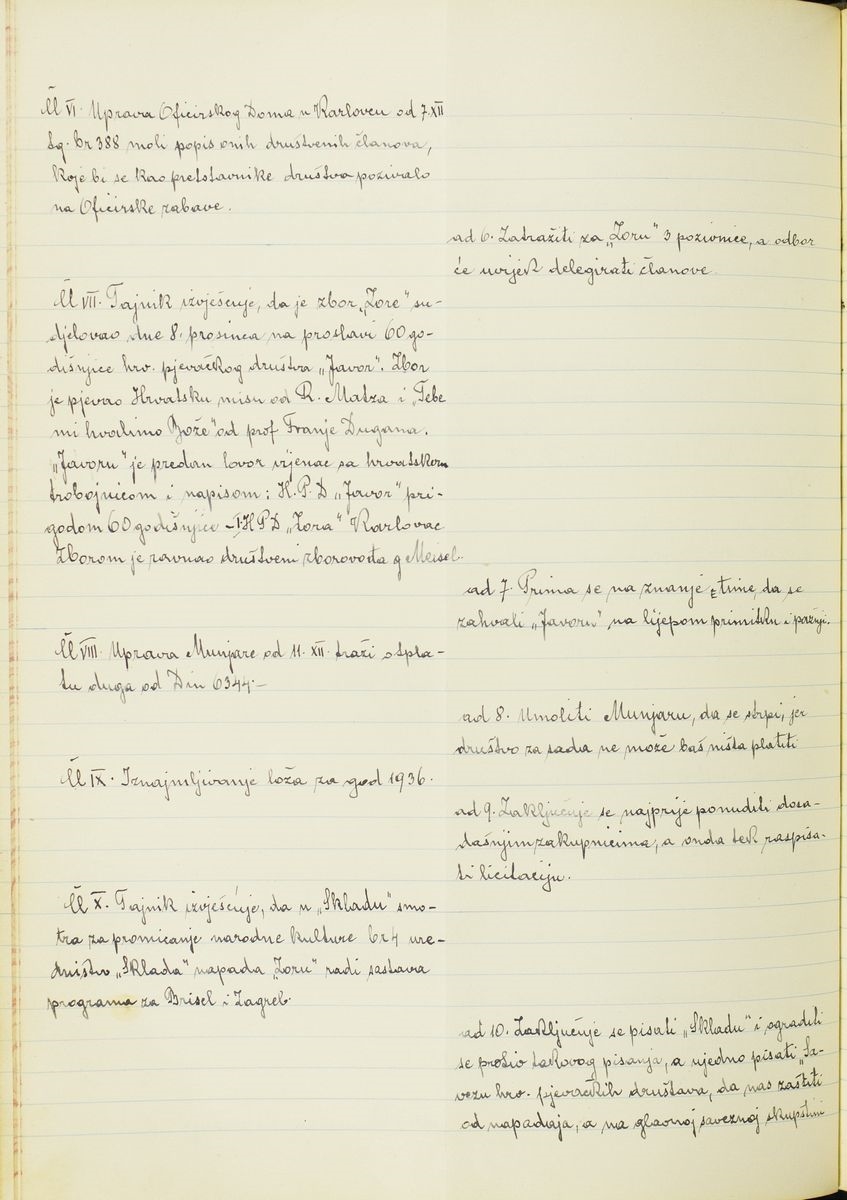 Čl VI. Uprava Oficirskog Doma u Karlovcu od 7.XII
tg. br 388 moli popis onih društvenih članova,
koje bi se kao pretstavnike društva pozivalo
na Oficirske zabave.
ad 6. Zatražiti za „Zoru" 3 pozivnice, a odbor
će uvijek delegirati članove.
Čl VII. Tajnik izvješćuje, da je zbor „Zore" su-
djelovao dne 8. prosinca na proslavi 60 go-
dišnjice hrv. pjevačkog društva „Javor". Zbor
je pjevao Hrvatsku misu od R. Matza i „Tebe
mi hvalimo Bože" od prof Franje Dugana.
„Javoru" je predan lovor vijenac sa hrvatskom
trobojnicom i napisom: H.P.D „Javor" pri-
godom 60 godišnjice – I.HPD „Zora" Karlovac
Zborom je ravnao društveni zborovođa g Meisel.
ad 7. Prima se na znanje s time, da se
zahvali „Javoru" na lijepom primitku i pažnji.
Čl VIII. Uprava Munjare od 11. XII. traži otpla-
tu duga od Din 6344.–
ad 8. Umoliti Munjaru, da se strpi, jer
društvo za sada ne može baš ništa platiti
Čl IX. Iznajmljivanje loža za god 1936.
ad 9. Zaključuje se najprije ponuditi dosa-
dašnjim zakupnicima, a onda tek raspisa-
ti licitaciju.
Čl X. Tajnik izvješćuje, da u „Skladu" smo-
tra za promicanje narodne kulture br 4 ure-
dništvo „Sklada" napada „Zoru" radi sastava
programa za Brisel i Zagreb.
ad 10. Zaključuje se pisati „Skladu" i ograditi
se protiv takovog pisanja, a ujedno pisati „Sa-
vezu hrv. pjevačkih društava, da nas zaštiti
od napadaja, a na glavnoj saveznoj skupštini